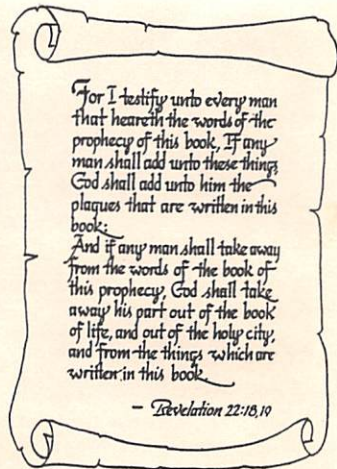 For I testify unto every man
that heareth the words of the
prophecy of this book, If any
man shall add unto these things,
God shall add unto him the
plagues that are written in this
book:
And if any man shall take away
from the words of the book of
this prophecy, God shall take
away his part out of the book
of life, and out of the holy city,
and from the things which are
written in this book.
— Revelation 22:18,19